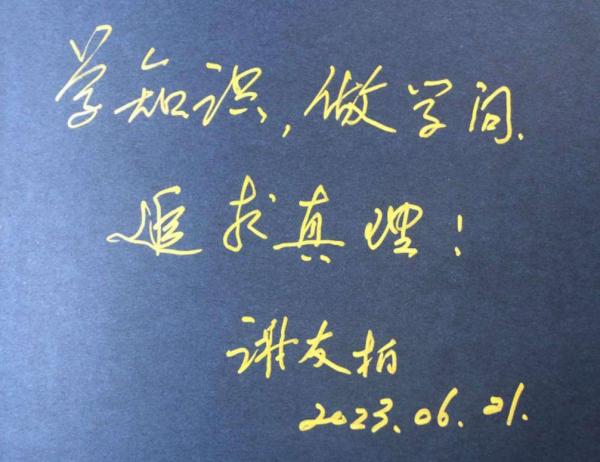 学知识，做学问，
追求真理！
谢友柏
2023.06.21.